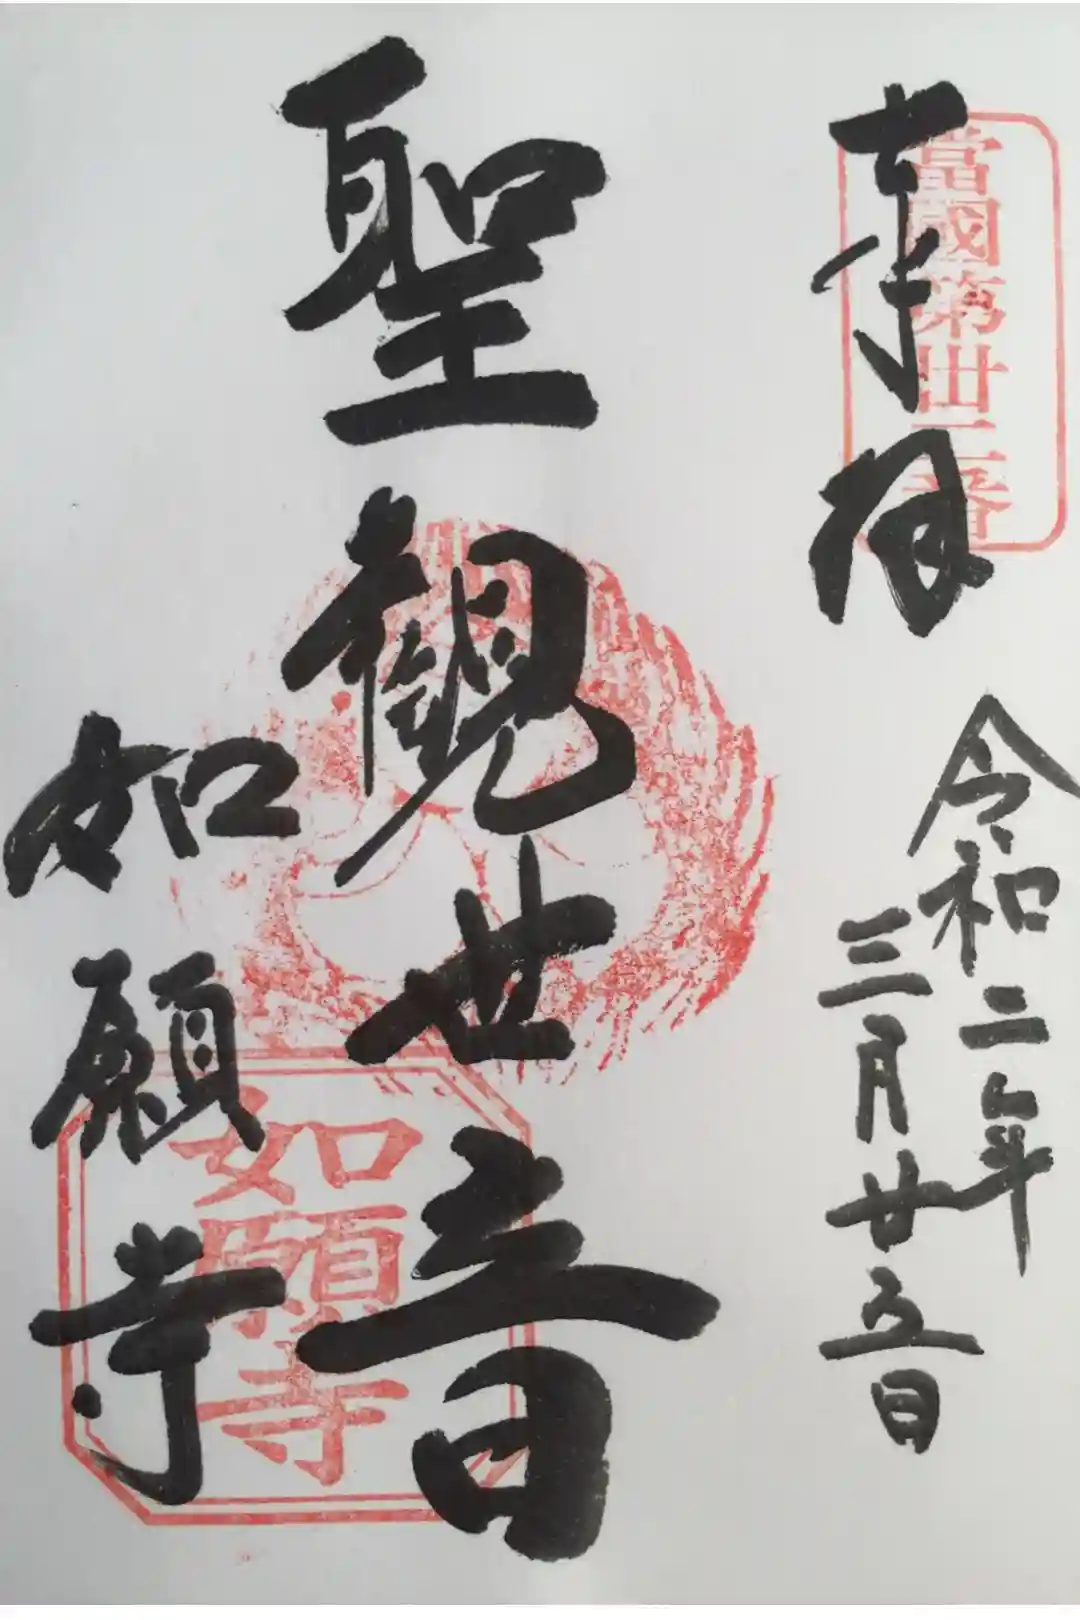 奉拝
當國第卅二番
令和二年
三月廿五日
聖観世音
如願寺
如願寺